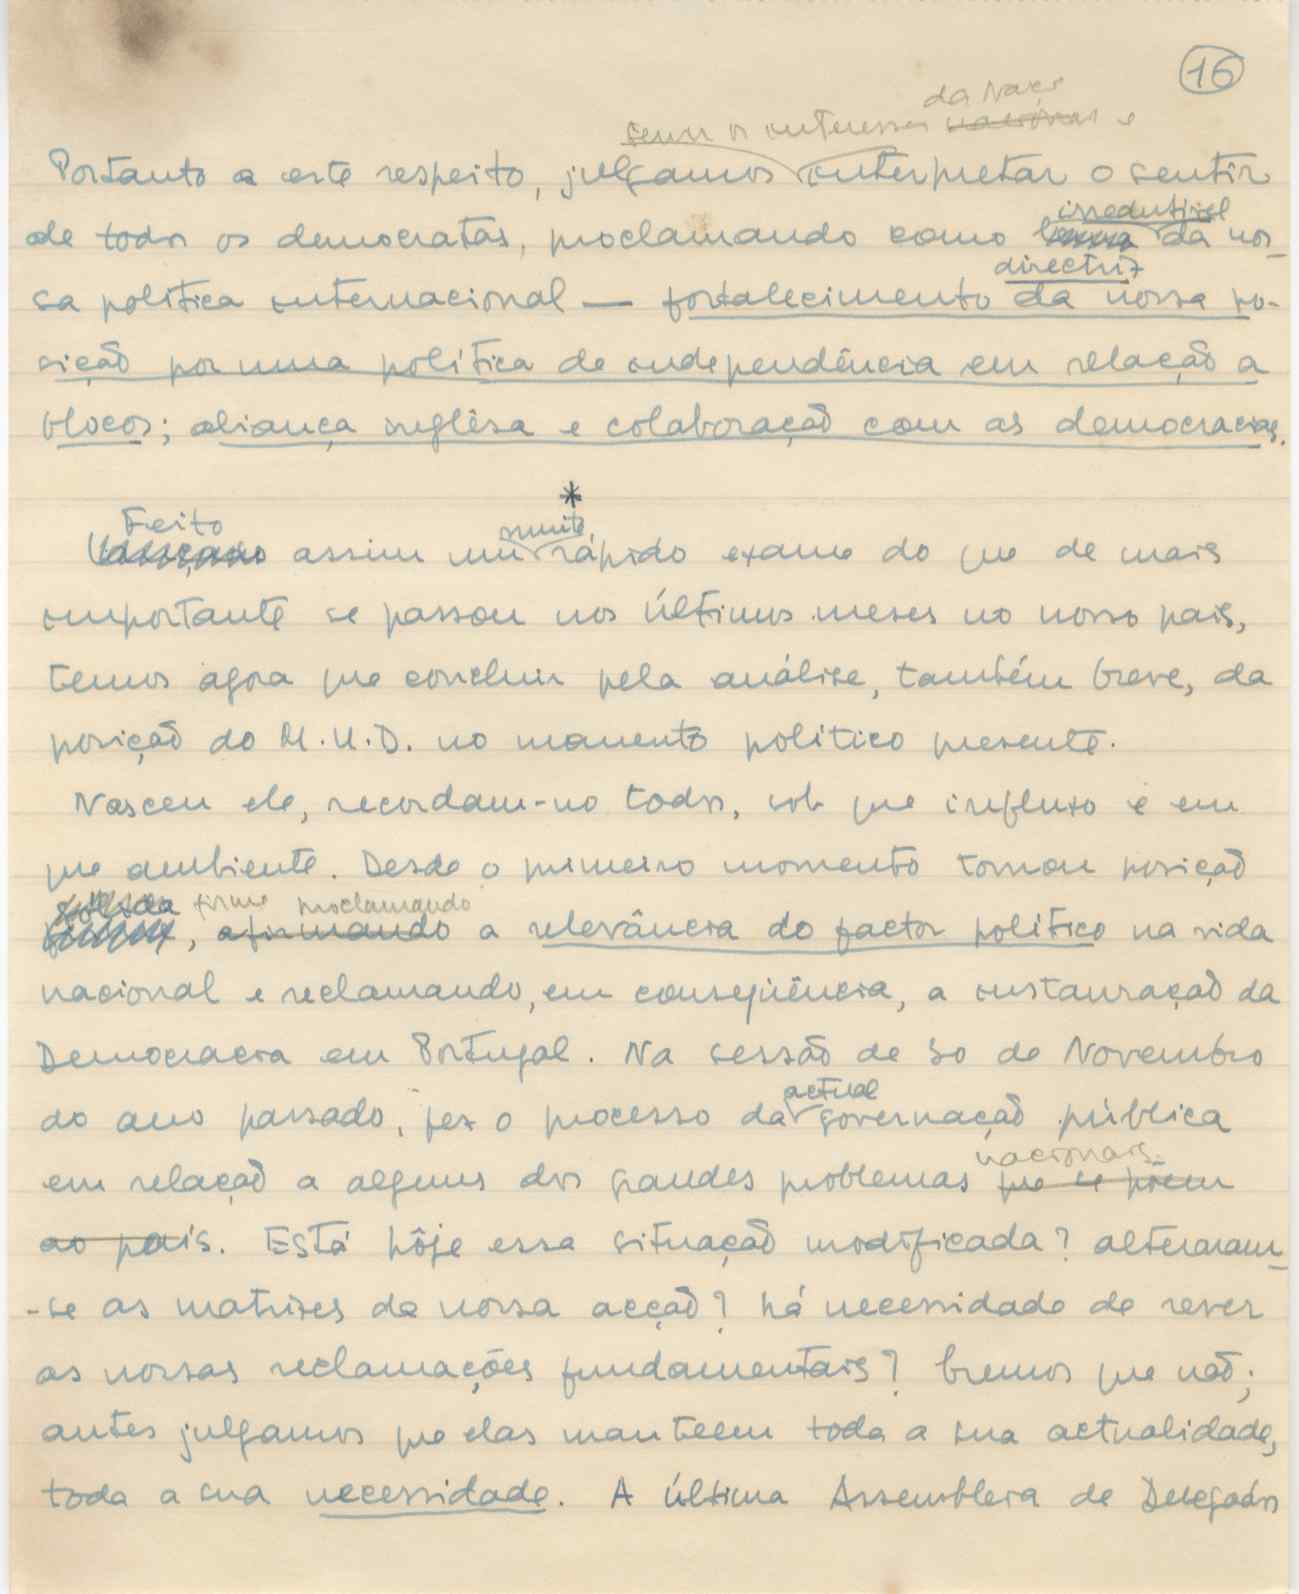 16
da Nação
servir os interesses nacionais e
Portanto a este respeito, julgamos interpretar o sentir
irredutível
de todos os democratas, proclamando como da nos-
directriz
sa política internacional — fortalecimento da nossa po-
sição por uma política de independência em relação a
blocos; aliança inglêsa e colaboração com as democracias.
*
Feito muito
assim um rápido exame do que de mais
importante se passou nos últimos meses no nosso país,
temos agora que concluir pela análise, também breve, da
posição do M.U.D. no momento político presente.
Nasceu ele, recordam-no todos, sob que influxo e em
que ambiente. Desde o primeiro momento tomou posição
sólida firme proclamando
, afirmando a relevância do factor político na vida
nacional e reclamando, em conseqüência, a instauração da
Democracia em Portugal. Na sessão de 30 de Novembro
actual
do ano passado, fez o processo da governação pública
nacionais.
em relação a alguns dos grandes problemas que se põem
ao país. Está hôje essa situação modificada? alteraram-
-se as matrizes da nossa acção? há necessidade de rever
as nossas reclamações fundamentais? Cremos que não;
antes julgamos que elas manteem toda a sua actualidade,
toda a sua necessidade. A última Assembleia de Delegados